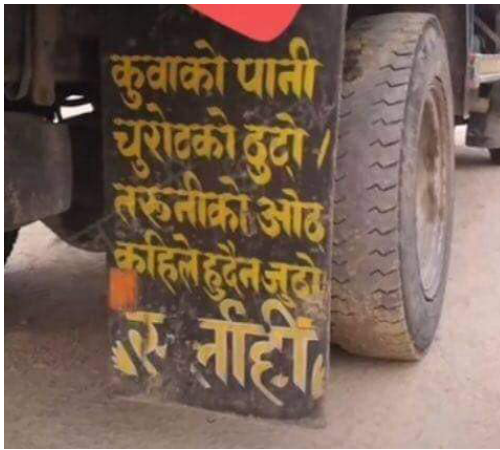 कुवाको पानी
चुरोटको ठुटो /
तरूनीको ओठ
कहिले हुदैन जुठो